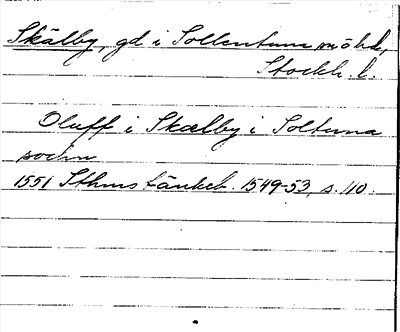 Skälby, gd i Sollentuna sn o hd,
Stockh. l.
Oluff i Skælby i Soltuna
sochn
1551 Sthms tänkeb. 1549-53, s. 110.